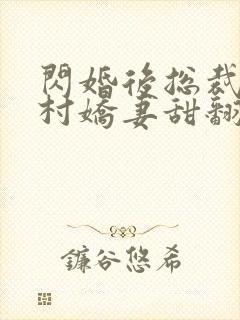 閃婚後總裁
村嬌妻甜翻
鐮谷悠希